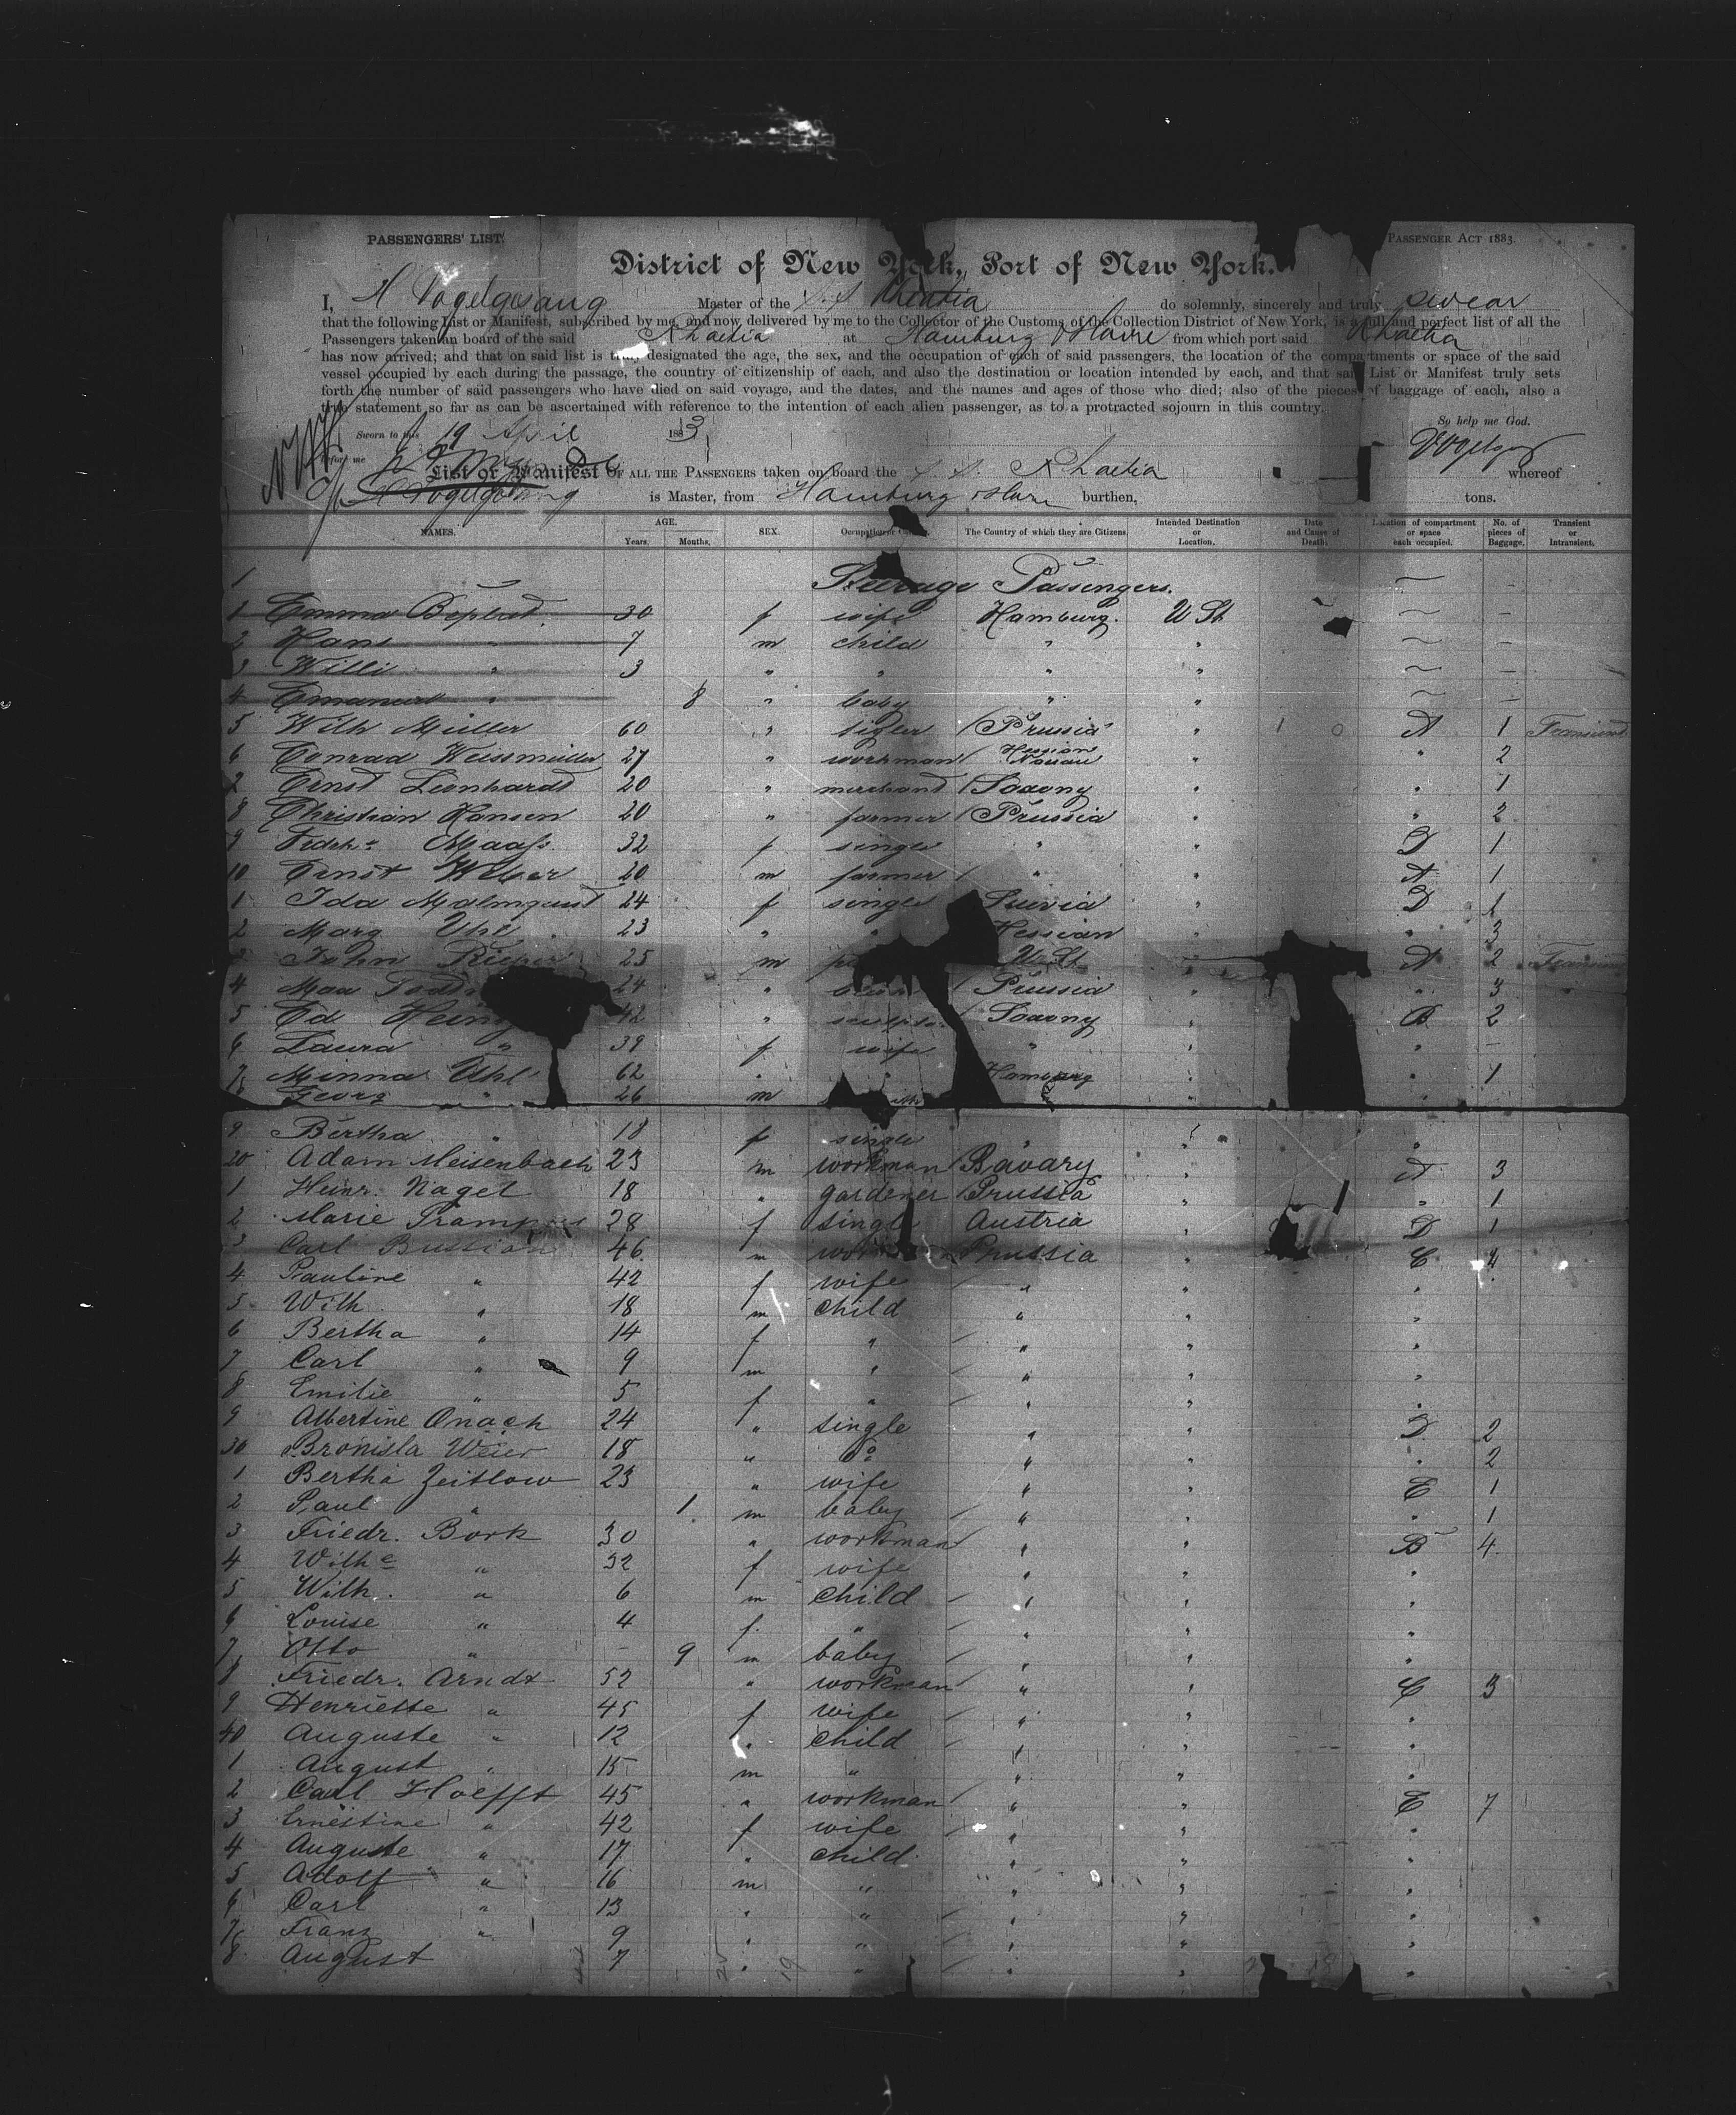 PASSENGERS' LIST.
PASSENGER ACT 1883.
District of New York, Port of New York.
I, H Vogelgesang Master of the S. S. Rhaetia do solemnly, sincerely and truly swear
that the following List or Manifest, subscribed by me, and now delivered by me to the Collector of the Customs of the Collection District of New York, is a full and perfect list of all the
Passengers taken on board of the said Rhaetia at Hamburg Havre from which port said Rhaetia
has now arrived; and that on said list is truly designated the age, the sex, and the occupation of each of said passengers, the location of the compartments or space of the said
vessel occupied by each during the passage, the country of citizenship of each, and also the destination or location intended by each, and that said List or Manifest truly sets
forth the number of said passengers who have died on said voyage, and the dates, and the names and ages of those who died; also of the pieces of baggage of each, also a
true statement so far as can be ascertained with reference to the intention of each alien passenger, as to a protracted sojourn in this country.
So help me God.
Sworn to this 19 April 1883
before me
List or Manifest OF ALL THE PASSENGERS taken on board the S. S. Rhaetia whereof
H Vogelgesang is Master, from Hamburg Havre burthen, tons.
NAMES. AGE. Years. Months. SEX. The Country of which they are Citizens. Intended Destination or Location. Date and Cause of Death. Location of compartment or space each occupied. No. of pieces of Baggage. Transient or Intransient.
1 Steerage Passengers.
1 Emma 30 f wife Hamburg. U St
2 Hans " 7 m child " "
3 Willi " 3 " " " "
4 Emanuel " 8 " baby " "
5 Wilh Müller 60 " Prussia " A 1 Transient
6 Conrad Weissmüller 27 " workman Hessian Nassau " " 2
7 Ernst Leonhardt 20 " merchand Saxony " " 1
8 Christian Hansen 20 " farmer Prussia " " 2
9 Maass 32 f single " " D 1
10 Ernst Weber 20 m farmer " " A 1
1 Ida Malmquist 24 f single Suevia " D 1
2 Marg Uhl 23 " " Hessian " " 3
3 John 25 m U St " A 2 Transient
4 Max 24 " Prussia " " 3
5 Ed 42 " Saxony " B 2
6 Laura " 39 f wife " " " -
7 Minna Uhl 62 " " Hamburg " " 1
8 Georg " 26 m
9 Bertha " 18 f single " " "
20 Adam Meisenbach 23 m workman Bavary " A 3
1 Heinr. Nagel 18 " gardener Prussia " " 1
2 Marie 28 f single Austria " D 1
3 Carl Bussian 46 m Prussia " C 4
4 Pauline " 42 f wife " " "
5 Wilh. " 18 m child " " "
6 Bertha " 14 f " " " "
7 Carl " 9 m " " " "
8 Emilie " 5 f " " " "
9 Albertine Onach 24 " single " " D 2
30 Bronisla Weier 18 " do " " " 2
1 Bertha Zeitlow 23 " wife " " C 1
2 Paul " 1 m baby " " " 1
3 Friedr. Bork 30 " workman " " B 4
4 Wilhe " 32 f wife " " "
5 Wilh. " 6 m child " " "
6 Louise " 4 f. " " " "
7 Otto " - 9 m baby " " "
8 Friedr. Arndt 52 " workman " " C 3
9 Henriette " 45 f wife " " "
40 Auguste " 12 " child " " "
1 August " 15 m " " " "
2 Carl Hoefft 45 " workman " " C 7
3 Ernestine " 42 f wife " " "
4 Auguste " 17 " child " " "
5 Adolf " 16 m " " " "
6 Carl " 13 " " " " "
7 Franz " 9 " " " " "
8 August 7 " " " " "